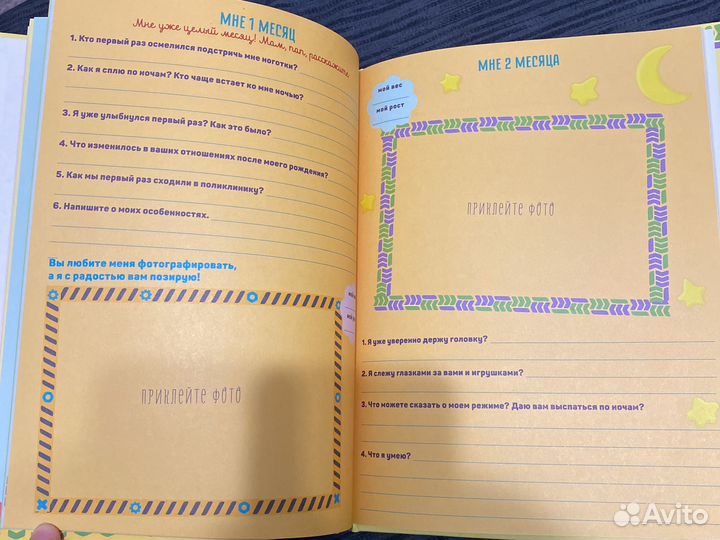 МНЕ 1 МЕСЯЦ
Мне уже целый месяц! Мам, пап, расскажите
1. Кто первый раз осмелился подстричь мне ноготки?
2. Как я сплю по ночам? Кто чаще встает ко мне ночью?
3. Я уже улыбнулся первый раз? Как это было?
4. Что изменилось в ваших отношениях после моего рождения?
5. Как мы первый раз сходили в поликлинику?
6. Напишите о моих особенностях.
Вы любите меня фотографировать,
а я с радостью вам позирую!
мой
ПРИКЛЕЙТЕ ФОТО
МНЕ 2 МЕСЯЦА
мой вес
мой рост
ПРИКЛЕЙТЕ ФОТО
1. Я уже уверенно держу головку?
2. Я слежу глазками за вами и игрушками?
3. Что можете сказать о моем режиме? Даю вам выспаться по ночам?
4. Что я умею?
Avito